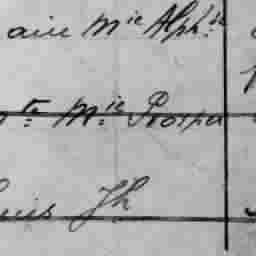 aire Mie Alph.se
te Mie Prosper
uis Jh